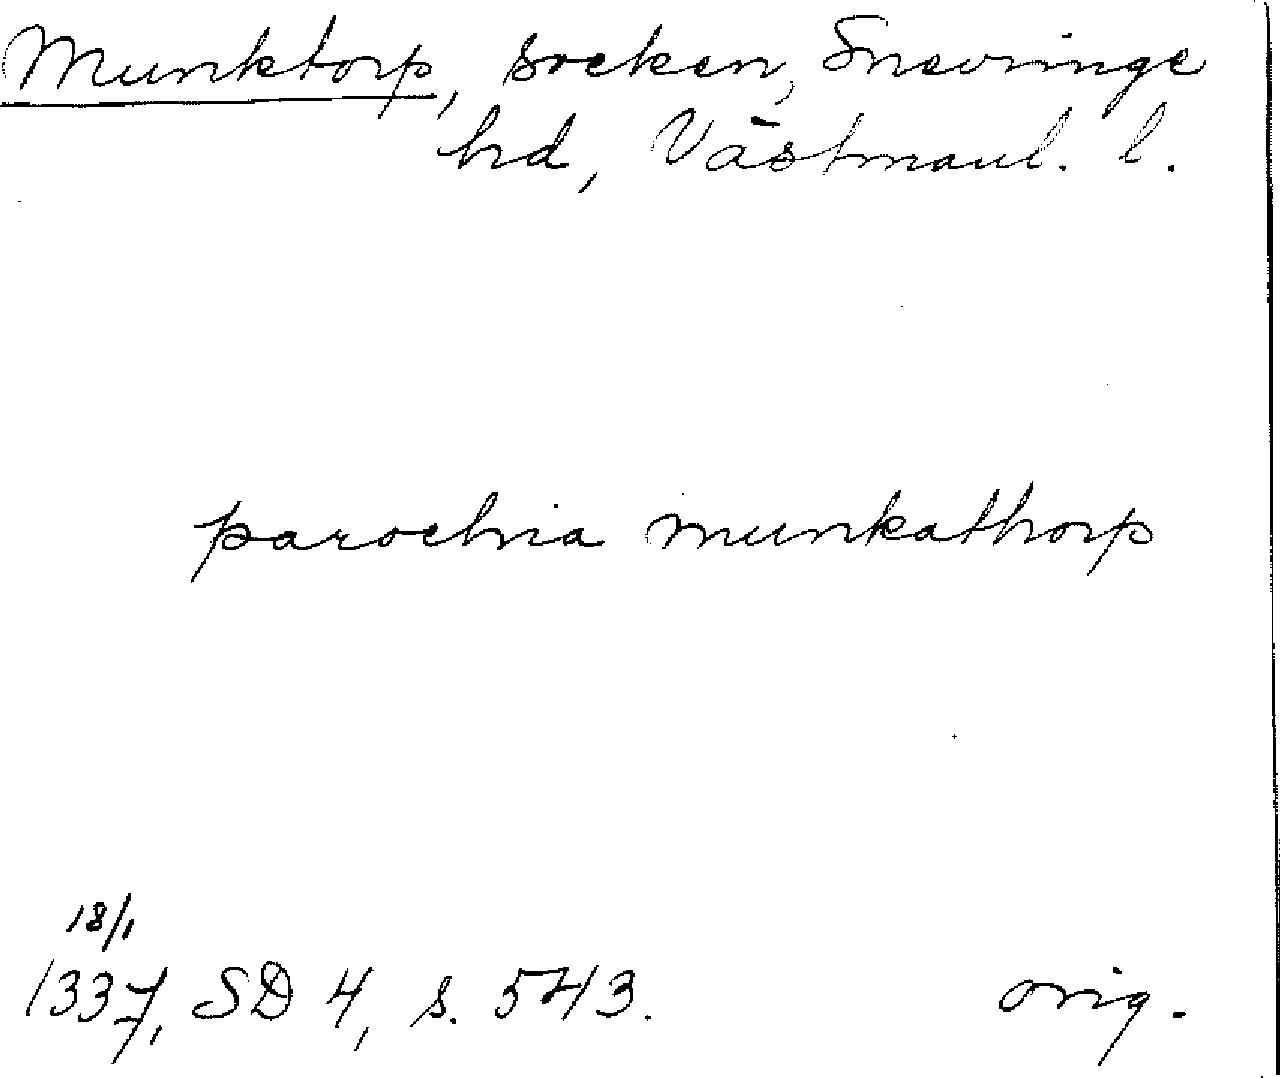 Munktorp, socken, Snevringe
hd, Västmanl. l.
parochia munkathorp
18/1
1337, SD 4, s. 543. orig.